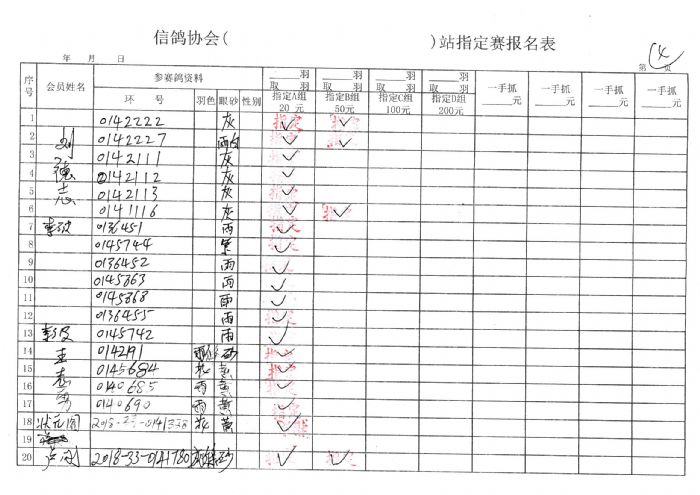 信鸽协会( )站指定赛报名表
年 月 日 第 页
序号 会员姓名 参赛鸽资料 ____羽 ____羽 ____羽 ____羽 一手抓 一手抓 一手抓 一手抓
取____羽 取____羽 取____羽 取____羽 ____元 ____元 ____元 ____元
环 号 羽色 眼砂 性别 指定A组 指定B组 指定C组 指定D组
20元 50元 100元 200元
1 0142222 灰 ✓ ✓
2 刘 0142227 ✓ ✓
3 0142111 灰 ✓
4 德 0142112 灰 ✓
5 志 0142113 灰 ✓
6 0141116 灰 ✓ ✓
7 0136451 雨 ✓
8 0145744 ✓
9 0136452 雨 ✓
10 0145863 雨 ✓
11 0145868 雨 ✓
12 0136455 雨 ✓
13 0145742 雨 ✓
14 王 0142191 砂 ✓
15 志 0145684 黄 ✓
16 0140685 雨 黄 ✓
17 0140690 雨 黄 ✓
18 状元阁 黄 ✓
19
20 2018-33-0141780 砂 ✓ ✓